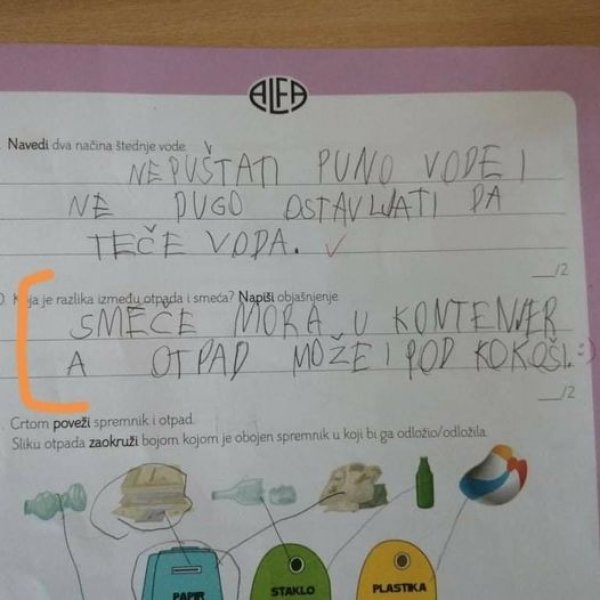 ALFA
Navedi dva načina štednje vode
NE PUŠTATI PUNO VODE I
NE DUGO OSTAVLJATI DA
TEČE VODA.
/2
Koja je razlika između otpada i smeća? Napiši objašnjenje
SMEČE MORA U KONTENJER
A OTPAD MOŽE I POD KOKOŠI. :)
/2
Crtom poveži spremnik i otpad.
Sliku otpada zaokruži bojom kojom je obojen spremnik u koji bi ga odložio/odložila.
PAPIR STAKLO PLASTIKA